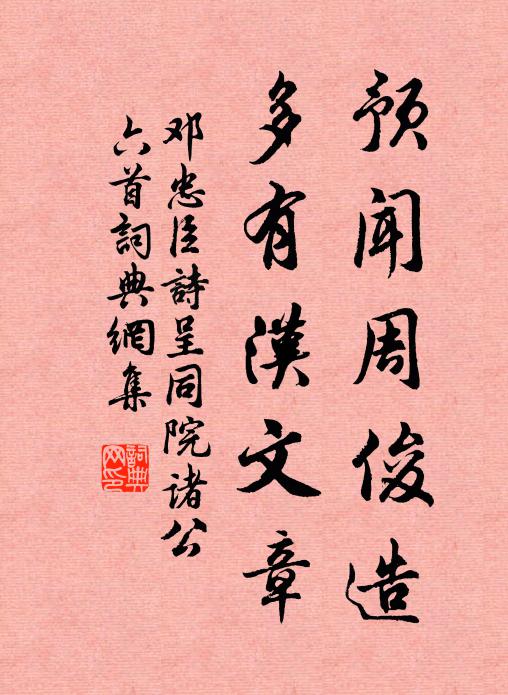 预闻周俊造
多有漢文章
邓忠臣詩呈同院诸公
六首詞典網集
詞典
网印